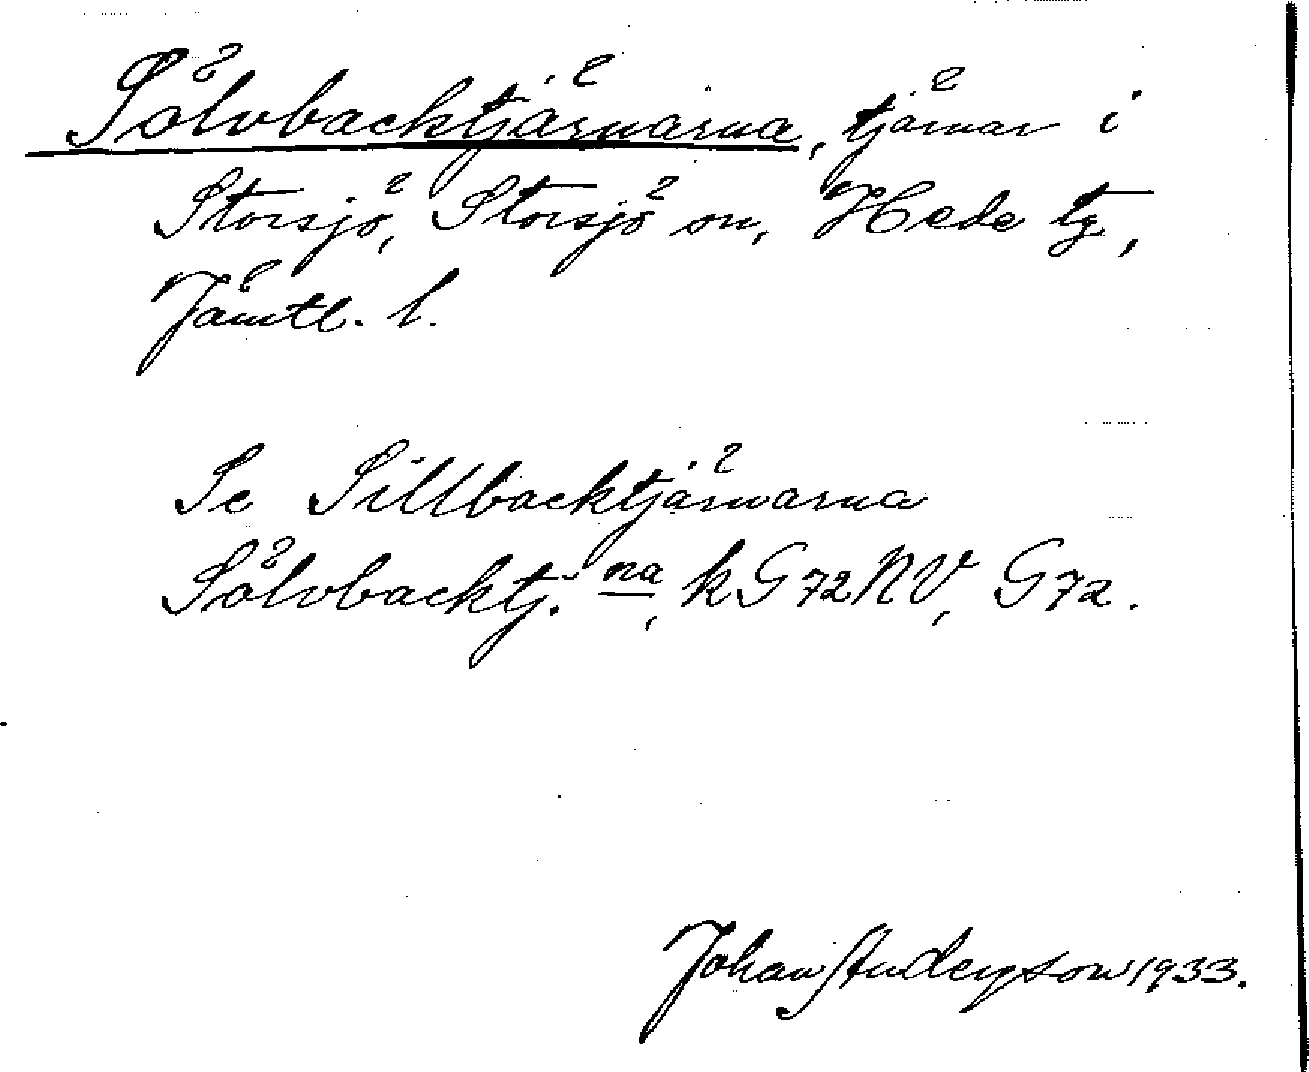 Sölvbacktjärnarna, tjärnar i
Storsjö, Storsjö sn, Hede tg,
Jämtl. l.
Se Sillbacktjärnarna
Sölvbacktj. na, k G72NV, G72.
Johan Anderson 1933.